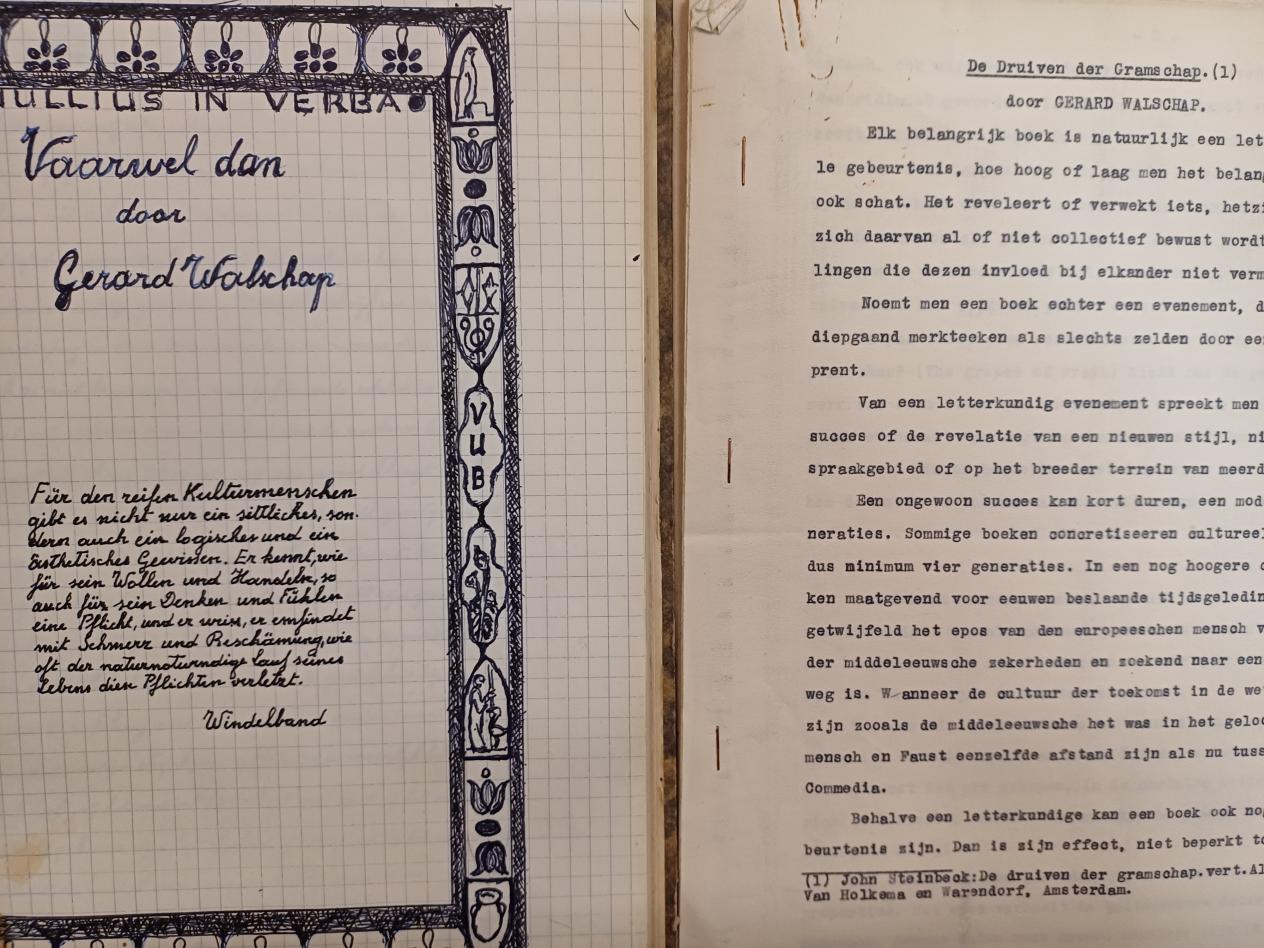 NULLIUS IN VERBA
Vaarwel dan
door
Gerard Walschap
V
U
B
Für den reifen Kulturmenschen
gibt es nicht nur ein sittliches, son-
dern auch ein logisches und ein
ästhetisches Gewissen. Er kennt, wie
für sein Wollen und Handeln, so
auch für sein Denken und Fühlen
eine Pflicht, und er weiss, er emfindet
mit Schmerz und Beschämung, wie
oft der naturnotwendige Lauf seines
Lebens diese Pflichten verletzt.
Windelband
De Druiven der Gramschap.(1)
door GERARD WALSCHAP.
Elk belangrijk boek is natuurlijk een let
le gebeurtenis, hoe hoog of laag men het belang
ook schat. Het reveleert of verwekt iets, hetzi
zich daarvan al of niet collectief bewust wordt
lingen die dezen invloed bij elkander niet verm
Noemt men een boek echter een evenement, d
diepgaand merkteeken als slechts zelden door ee
prent.
Van een letterkundig evenement spreekt men
succes of de revelatie van een nieuwen stijl, ni
spraakgebied of op het breeder terrein van meerd
Een ongewoon succes kan kort duren, een mod
neraties. Sommige boeken concretiseeren cultureel
dus minimum vier generaties. In een nog hoogere
ken maatgevend voor eeuwen beslaande tijdsgeledin
getwijfeld het epos van den europeeschen mensch v
der middeleeuwsche zekerheden en zoekend naar een
weg is. Wanneer de cultuur der toekomst in de we
zijn zooals de middeleeuwsche het was in het geloo
mensch en Faust eenzelfde afstand zijn als nu tuss
Commedia.
Behalve een letterkundige kan een boek ook no
beurtenis zijn. Dan is zijn effect, niet beperkt to
(1) John Steinbeck:De druiven der gramschap.vert.Al
Van Holkema en Warendorf, Amsterdam.